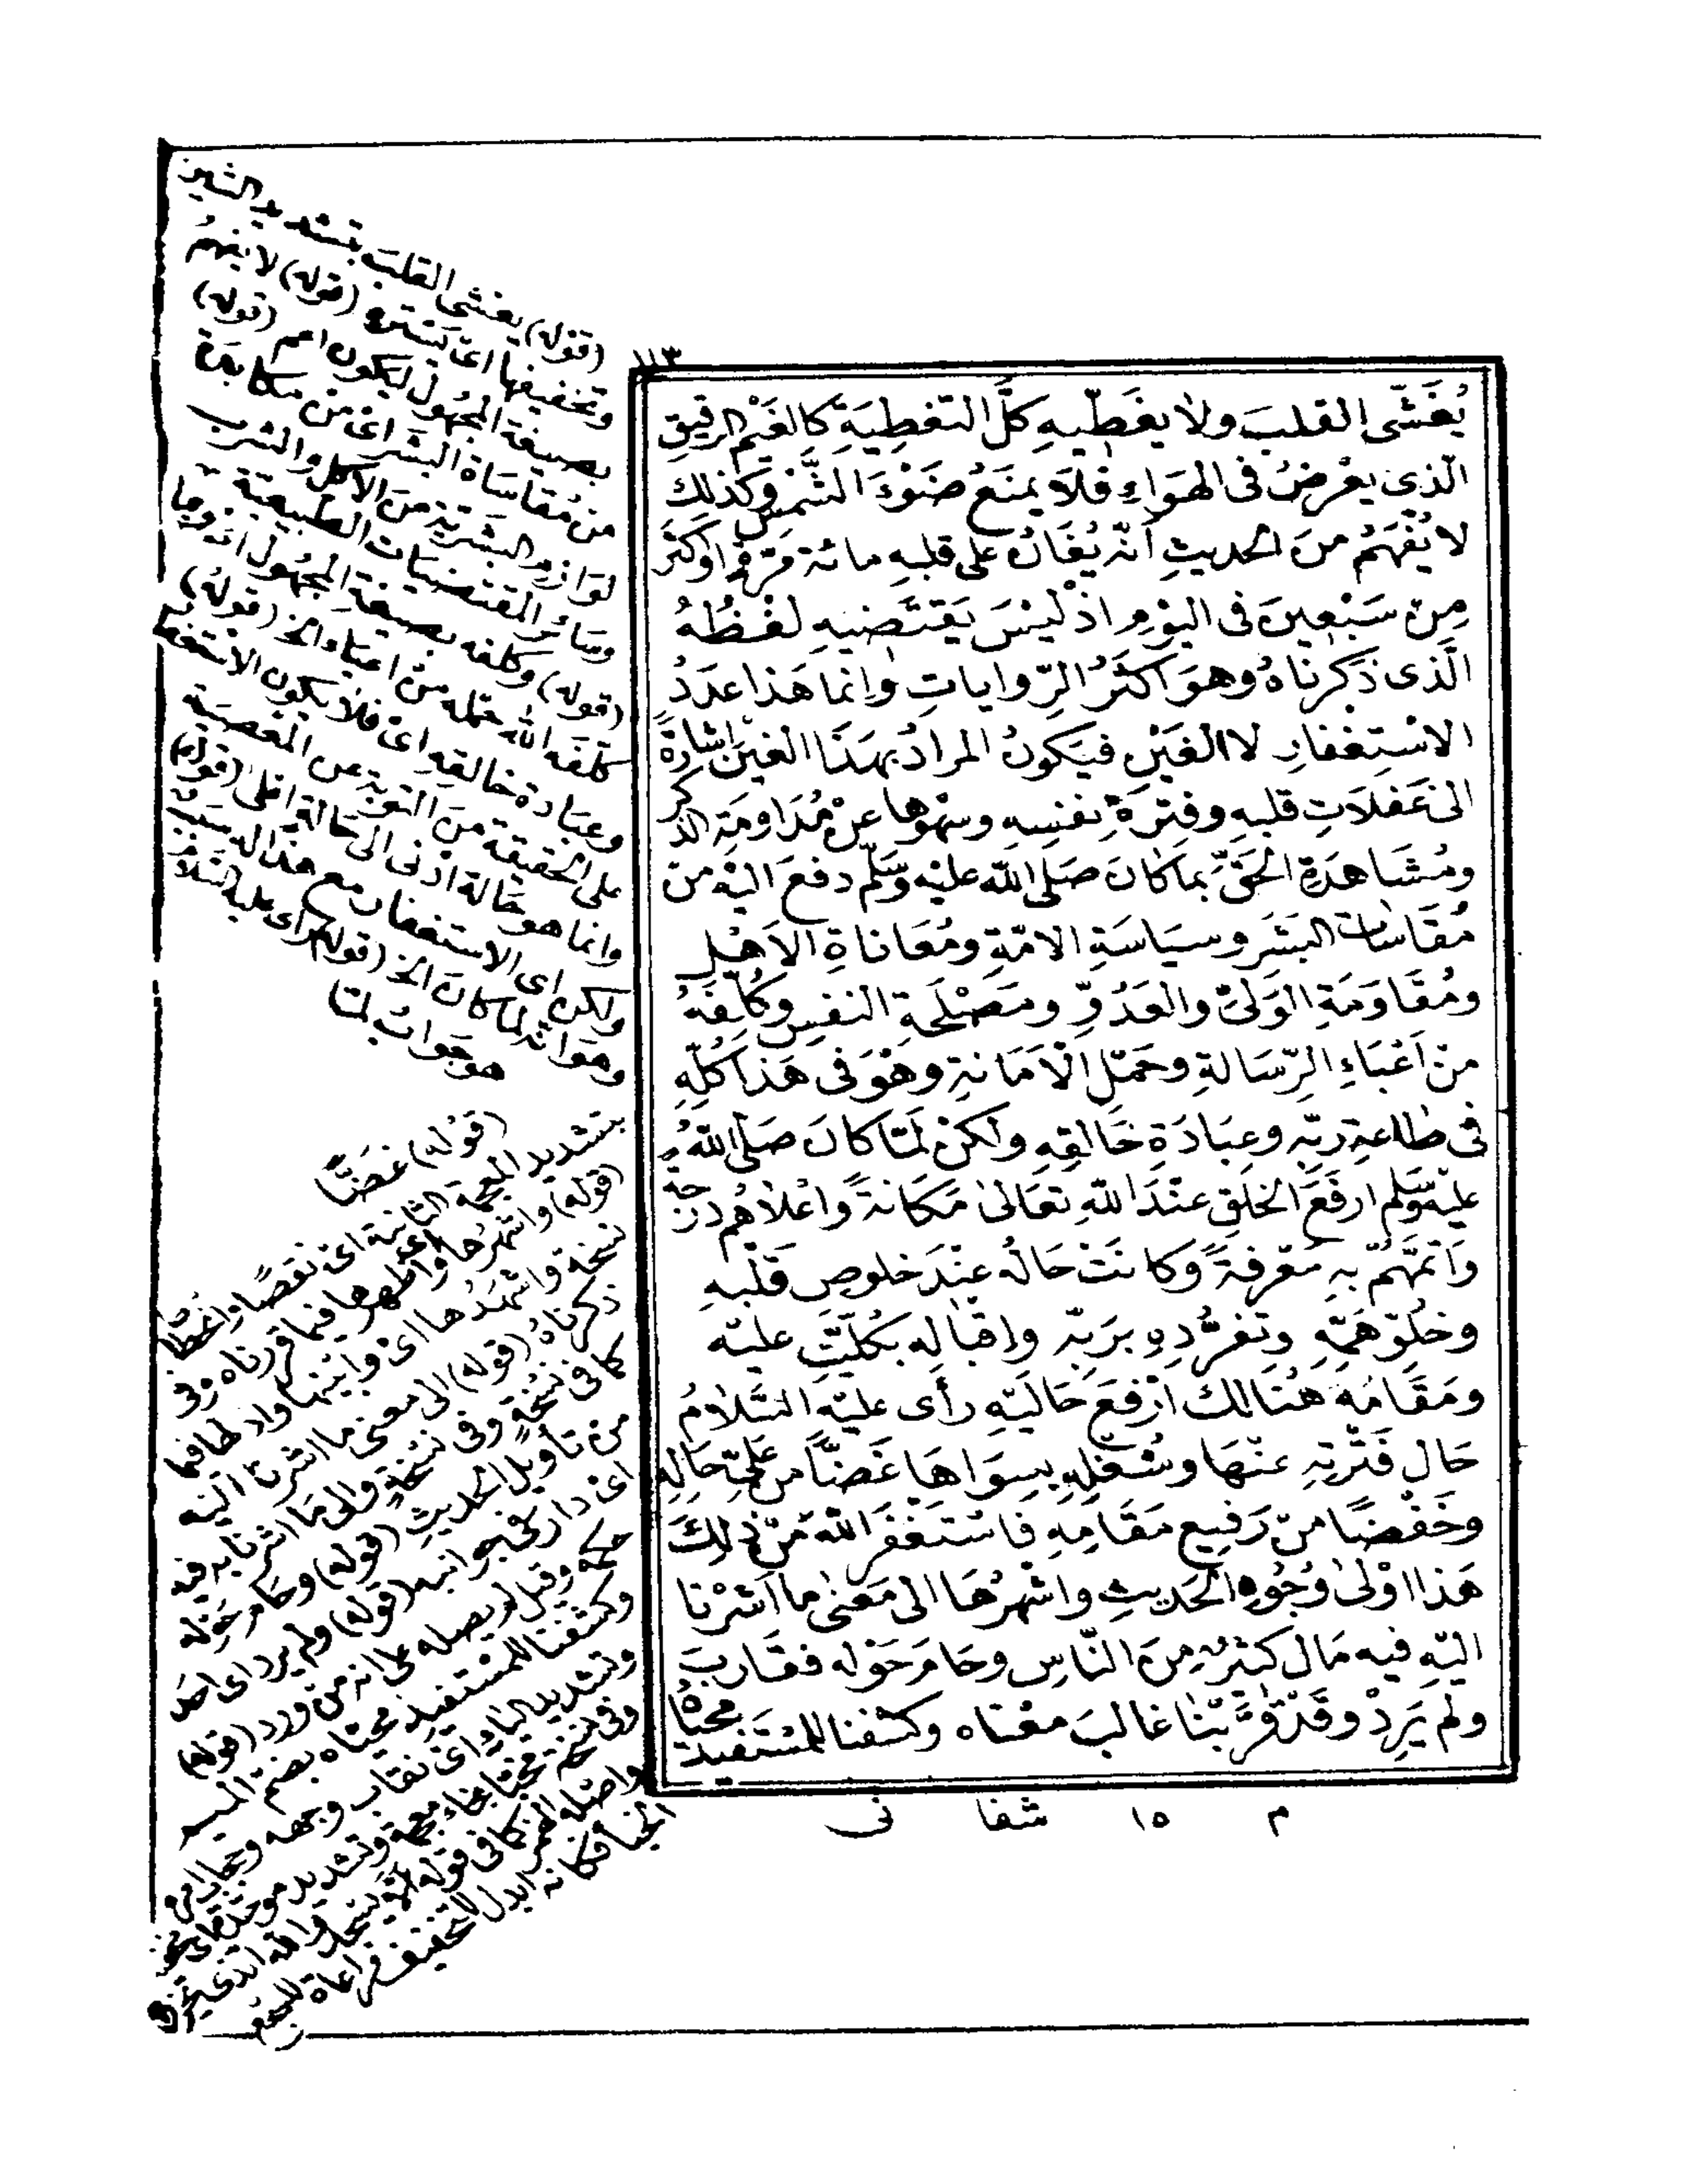 ١١٣
يُغَشّى القلبَ ولا يغَطّيهِ كلَّ التغطِيَةِ كالغَيْمِ الرقيقِ
الّذي يعْرضُ فى الهوَاءِ فلَا يمنَعُ ضَوْءَ الشَّمْسِ وكذلِك
لا يُفهَمُ منَ الحديثِ أنّه يُغَانُ على قلبهِ مائة مَرّةٍ اوْ اكثَرَ
مِنْ سَبْعِينَ فى اليوْمِ اذْ ليْسَ يَقتَضيهِ لفْظُهُ
الّذى ذكَرناهُ وهوَ اكثَرُ الرّواياتِ وانما هَذا عدَدُ
الاسْتِغفارِ لا الغَيْنِ فيَكونُ المرادُ بهَذَا الغَيْنِ اشارَةً
الى غَفلَاتِ قلبهِ وفتَرَةِ نفسِهِ وسَهْوِها عنْ مُدَاومَةِ الذكر
ومُشَاهدَةِ الحَقِّ بما كانَ صَلى الله عليْه وسَلّم دفعَ اليْه من
مُقَاسَاتِ البَشَرِ وسيَاسَةِ الامّةِ ومُعَاناةِ الاهْلِ
ومُقَاوَمَةِ الوَلىّ والعَدُوِّ ومَصْلَحَةِ النفسِ وكُلِّفَهُ
منْ اَعْبَاءِ الرّسَالةِ وحَمْلِ الاَمَانةِ وهُوَ فى هَذا كلِّهِ
فى طاعةِ ربّه وعِبَادَةِ خَالقِهِ ولكنْ لَمّا كانَ صَلى الله
عليْه وسَلّم ارفَعَ الخَلقِ عنْدَ اللهِ تعَالى مَكَانةً واعْلاهُم درَجَةً
وَاتمَّهُمْ بهِ مَعْرفةً وكانَتْ حَالهُ عنْدَ خلوصِ قَلْبهِ
وخُلُوّ هَمِّهِ وتفرُّدِهِ برَبّه واقبَالِهِ بكُلّيّتِهِ عليْه
ومَقَامُهُ هُنَالِكَ ارْفعَ حَاليْهِ رَأى عليْهِ السَّلامُ
حَال فَتْرتِهِ عنْهَا وشُغلِهِ بسِوَاهَا غَضًّا من عَلِىّ حَالِهِ
وخَفْضًا منْ رَفيعِ مَقَامِهِ فَاسْتَغْفَرَ اللهَ منْ ذلِكَ
هَذا اوْلى وُجُوهِ الحَديثِ واشْهرُهَا الى مَعْنى ما اَشرْنا
اليْهِ فيه مَال كثيرٌ مِنَ النّاسِ وحَامَ حَوْله فقارَبَ
ولَم يَرِدْ وقَدْ قرَّبْنا غامِضَ معْناه وكشفنا للمُسْتَفيدِ مُحيّاهُ
م ١٥ شفا نى
(قوله) يغشى القلبَ بتشديد الشين
وتخفيفها اى يَستره (قوله) لا يفهمُ
بصيغة المجهُول ليكون اعم (قوله)
من مُقاسَاة البشر اى من مكابدة
لوازم البشريّة من الأكل والشرب
وسائر المقتضيات الطبيعيّة
(قوله) وكلفه بصيغة المجهُول اى وما
كلفَه الله حمله من اعباء الخ (قوله)
وعبَادة خالقه اى فلا يكون الاستغفار
على الحقيقة من التوبة عن المعصية
وانما هو حَالة ادنى الى حَالة اعلى (قوله)
ولكن اى الاستغفار مع هذا
وهو انه لما كان الخ (قوله) راى عليه السّلام
هو جَوابُ لمّا
(قوله) غضًّا
بتشديد المعجمة الثانية اى نقصًا وانحطاطا
(قوله) واشهرُها اى اظهرها فيما قررناه وفى
نسخة واشهدُها اى وابينها وادلها فيما
ذكرناهُ (قوله) الى معنى ما اشرنا اليه
كما فى نسْخةٍ وفى نسْخةٍ والى ما اشرنا به فيه
من تأويل الحديثِ (قوله) وحَام حَوْله
اى دار فى جوانبه (قوله) ولم يرد اى احَد
حكمه وقيل لم يصله على انه من ورد (قوله)
وكشفنا للمُسْتفيدِ محيّاه بضم الميم
وتشديد الياء اى نقاب وجهه وحجاب امره
وفى نسْخة مخبّاه بخاء معجمة وتشديد موحّدة
واصْله الهمز كما فى قوله ألّا يسجدُوا لله الذى يخرج
الخبأ فكأنه ابدل للتخفيف ومراعاة للسجع